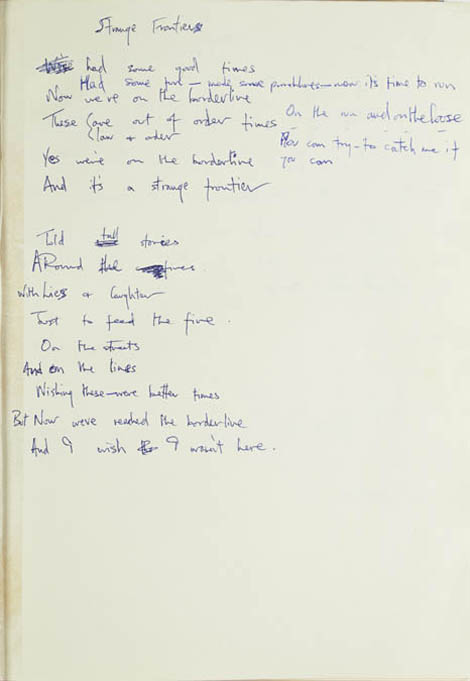 Strange Frontiers
had some good times
Had some fun — made some — now it's time to run
Now we're on the borderline
These (are out of order times
(law & order
On the run and on the loose
You can try - to catch me if
you can
Yes we're on the borderline
And it's a strange frontier
Told tall stories
Around the
With Lies & laughter
Just to feed the fire.
On the streets
And on the lines
Wishing these were better times
But Now weve reached the borderline
And I wish I wasn't here.